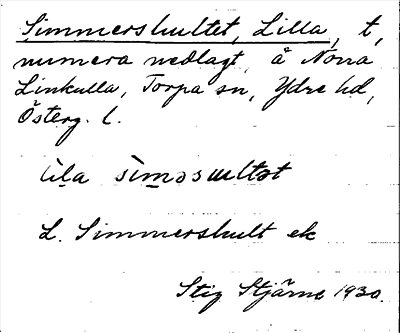 Simmershultet, Lilla, t,
numera nedlagt, å Norra
Linkulla, Torpa sn, Ydre hd,
Österg. l.
lìla sìməsultət
L. Simmershult ek
Stig Stjärne 1930.